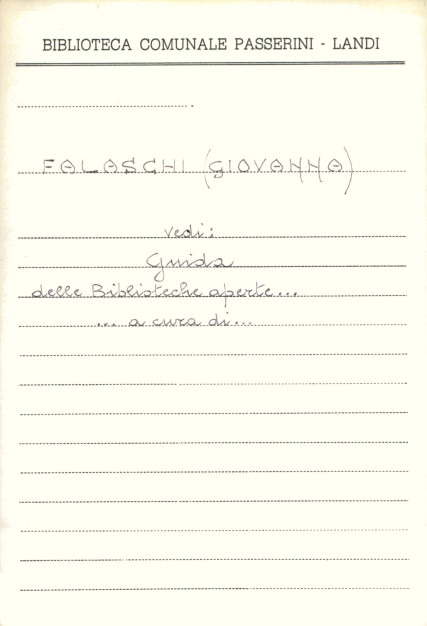 BIBLIOTECA COMUNALE PASSERINI - LANDI
FALASCHI (GIOVANNA)
vedi:
Guida
delle Biblioteche aperte...
... a cura di...